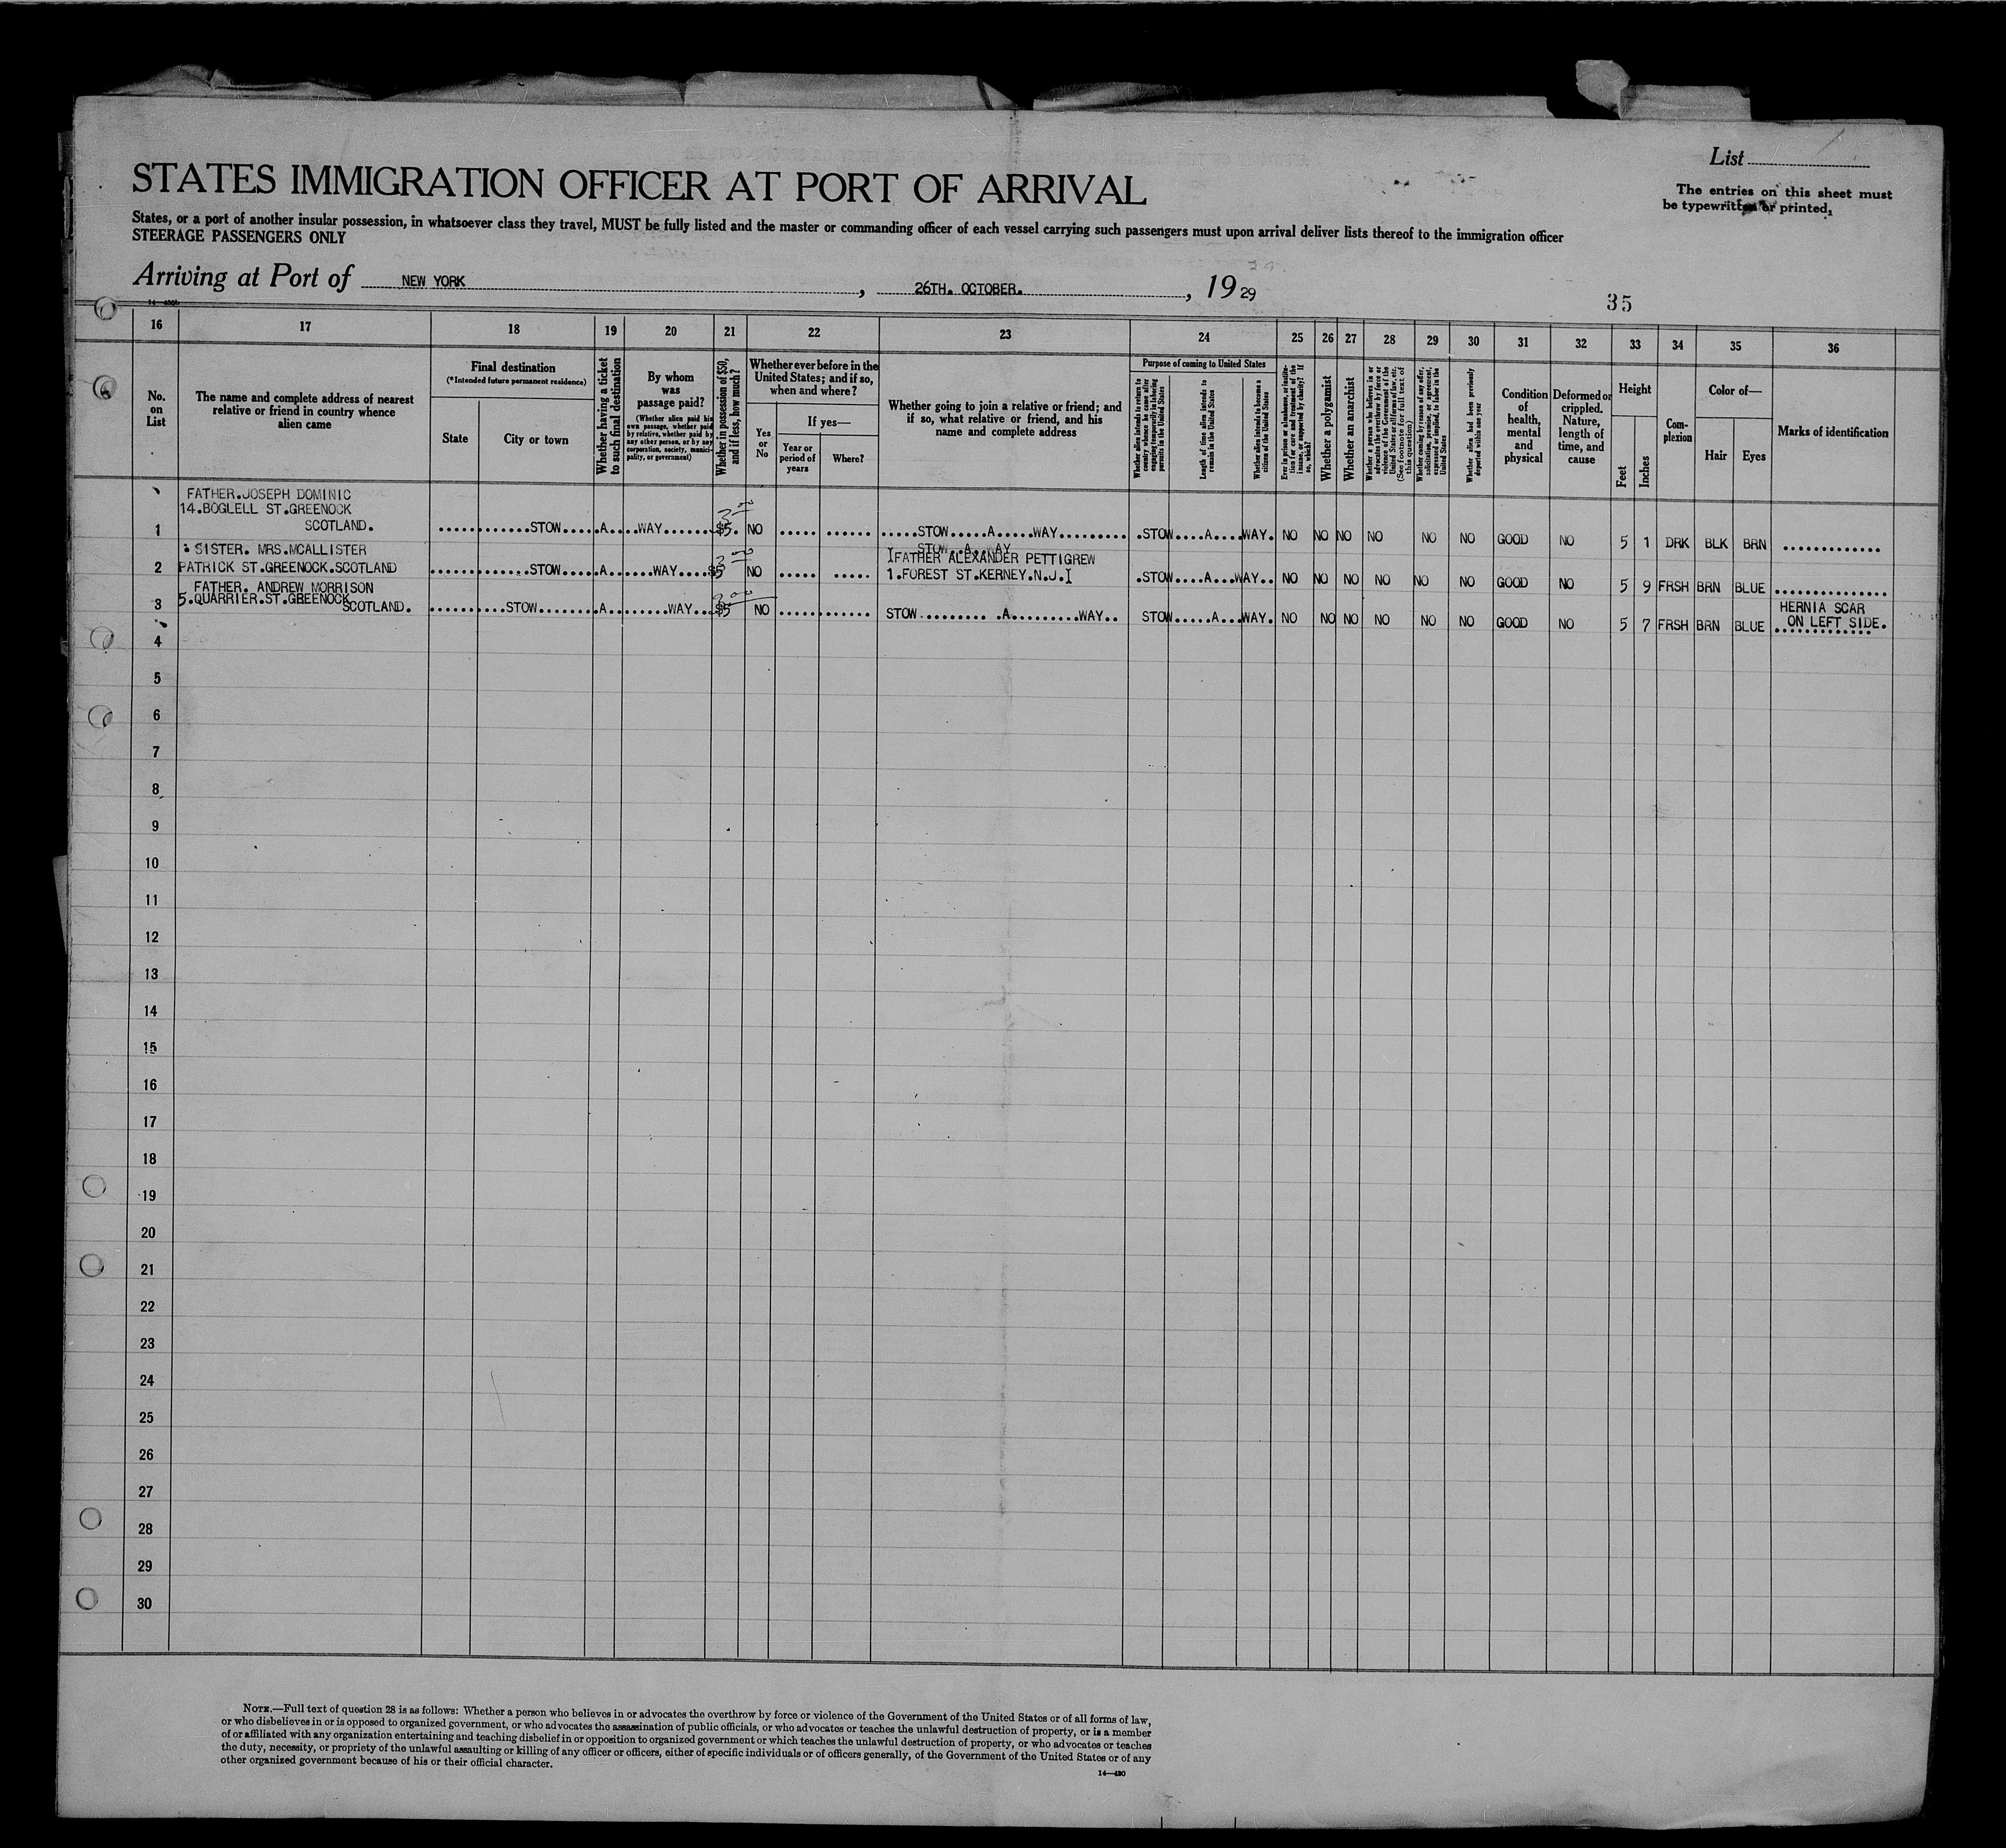 List
STATES IMMIGRATION OFFICER AT PORT OF ARRIVAL
The entries on this sheet must
be typewritten or printed.
States, or a port of another insular possession, in whatsoever class they travel, MUST be fully listed and the master or commanding officer of each vessel carrying such passengers must upon arrival deliver lists thereof to the immigration officer
STEERAGE PASSENGERS ONLY
Arriving at Port of NEW YORK, 26TH. OCTOBER., 19 29
35
16 17 18 19 20 21 22 23 24 25 26 27 28 29 30 31 32 33 34 35 36
No. on List
The name and complete address of nearest
relative or friend in country whence
alien came
Final destination
(*Intended future permanent residence)
State
City or town
Whether having a ticket
to such final destination
By whom
was
passage paid?
(Whether alien paid his
own passage, whether paid
by relative, whether paid by
any other person, or by any
corporation, society, munici-
pality, or government)
Whether in possession of $50,
and if less, how much?
Whether ever before in the
United States; and if so,
when and where?
Yes
or
No
If yes—
Year or
period of
years
Where?
Whether going to join a relative or friend; and
if so, what relative or friend, and his
name and complete address
Purpose of coming to United States
Whether alien intends to return to
country whence he came after
engaging temporarily in laboring
pursuits in the United States
Length of time alien intends to
remain in the United States
Whether alien intends to become a
citizen of the United States
Ever in prison or almshouse, or institu-
tion for care and treatment of the
insane, or supported by charity? If
so, which?
Whether a polygamist
Whether an anarchist
Whether a person who believes in or
advocates the overthrow by force or
violence of the Government of the
United States or all forms of law, etc.
(See footnote for full text of
this question)
Whether coming by reason of any offer,
solicitation, promise, or agreement,
expressed or implied, to labor in the
United States
Whether alien had been previously
deported within one year
Condition
of
health,
mental
and
physical
Deformed or
crippled.
Nature,
length of
time, and
cause
Height
Feet
Inches
Com-
plexion
Color of—
Hair
Eyes
Marks of identification
FATHER.JOSEPH DOMINIC
14.BOGLELL ST.GREENOCK
SCOTLAND.
1 ............STOW.....A....WAY.......$5. NO ..... ...... .....STOW.....A.....WAY.......... .STOW....A....WAY. NO NO NO NO NO NO GOOD NO 5 1 DRK BLK BRN .............
SISTER. MRS.MCALLISTER
STOW..A..WAY
FATHER ALEXANDER PETTIGREW
2 PATRICK ST.GREENOCK.SCOTLAND ............STOW.....A.......WAY....$5 NO ..... ..... 1.FOREST ST.KERNEY.N.J. .STOW....A...WAY.. NO NO NO NO NO NO GOOD NO 5 9 FRSH BRN BLUE ...............
FATHER. ANDREW MORRISON
5.QUARRIER.ST.GREENOCK
HERNIA SCAR
3 SCOTLAND. .........STOW........A........WAY...$5 NO ............. STOW......... .A..........WAY.. STOW.....A...WAY. NO NO NO NO NO NO GOOD NO 5 7 FRSH BRN BLUE ON LEFT SIDE.
4
5
6
7
8
9
10
11
12
13
14
15
16
17
18
19
20
21
22
23
24
25
26
27
28
29
30
NOTE.—Full text of question 28 is as follows: Whether a person who believes in or advocates the overthrow by force or violence of the Government of the United States or of all forms of law,
or who disbelieves in or is opposed to organized government, or who advocates the assassination of public officials, or who advocates or teaches the unlawful destruction of property, or is a member
of or affiliated with any organization entertaining and teaching disbelief in or opposition to organized government or which teaches the unlawful destruction of property, or who advocates or teaches
the duty, necessity, or propriety of the unlawful assaulting or killing of any officer or officers, either of specific individuals or of officers generally, of the Government of the United States or of any
other organized government because of his or their official character.
14—430